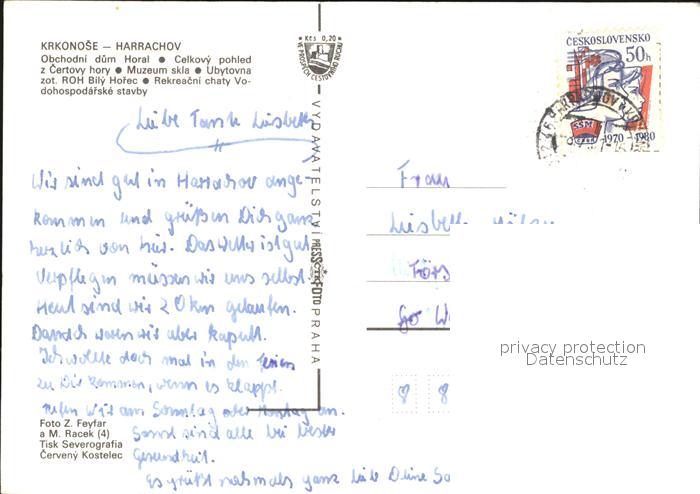 KRKONOŠE – HARRACHOV
Obchodní dům Horal ● Celkový pohled
z Čertovy hory ● Muzeum skla ● Ubytovna
zot. ROH Bílý Hořec ● Rekreační chaty Vo-
dohospodářské stavby
Kčs 0,20
VE PROSPĚCH CESTOVNÍHO RUCHU
ČESKOSLOVENSKO
50h
SSM
1970 – 1980
Liebe Tante Liesbeth
Wir sind gut in Harrachov ange-
kommen und grüßen Dich ganz
herzlich von hier. Das Wetter ist gut
Verpflegen müssen wir uns selbst.
Heut sind wir 20km gelaufen.
Danach waren wir aber kaputt.
Ich wollte doch mal in den Ferien
zu Dir kommen, wenn es klappt.
rufen wir am Sonntag oder Montag an.
Sonst sind alle bei bester
Gesundheit.
Es grüßt nochmals ganz liebe Deine
VYDAVATELSTVÍ PRESSFOTO PRAHA
Frau
Liesbeth
8 8
Foto Z. Feyfar
a M. Racek (4)
Tisk Severografia
Červený Kostelec
privacy protection
Datenschutz